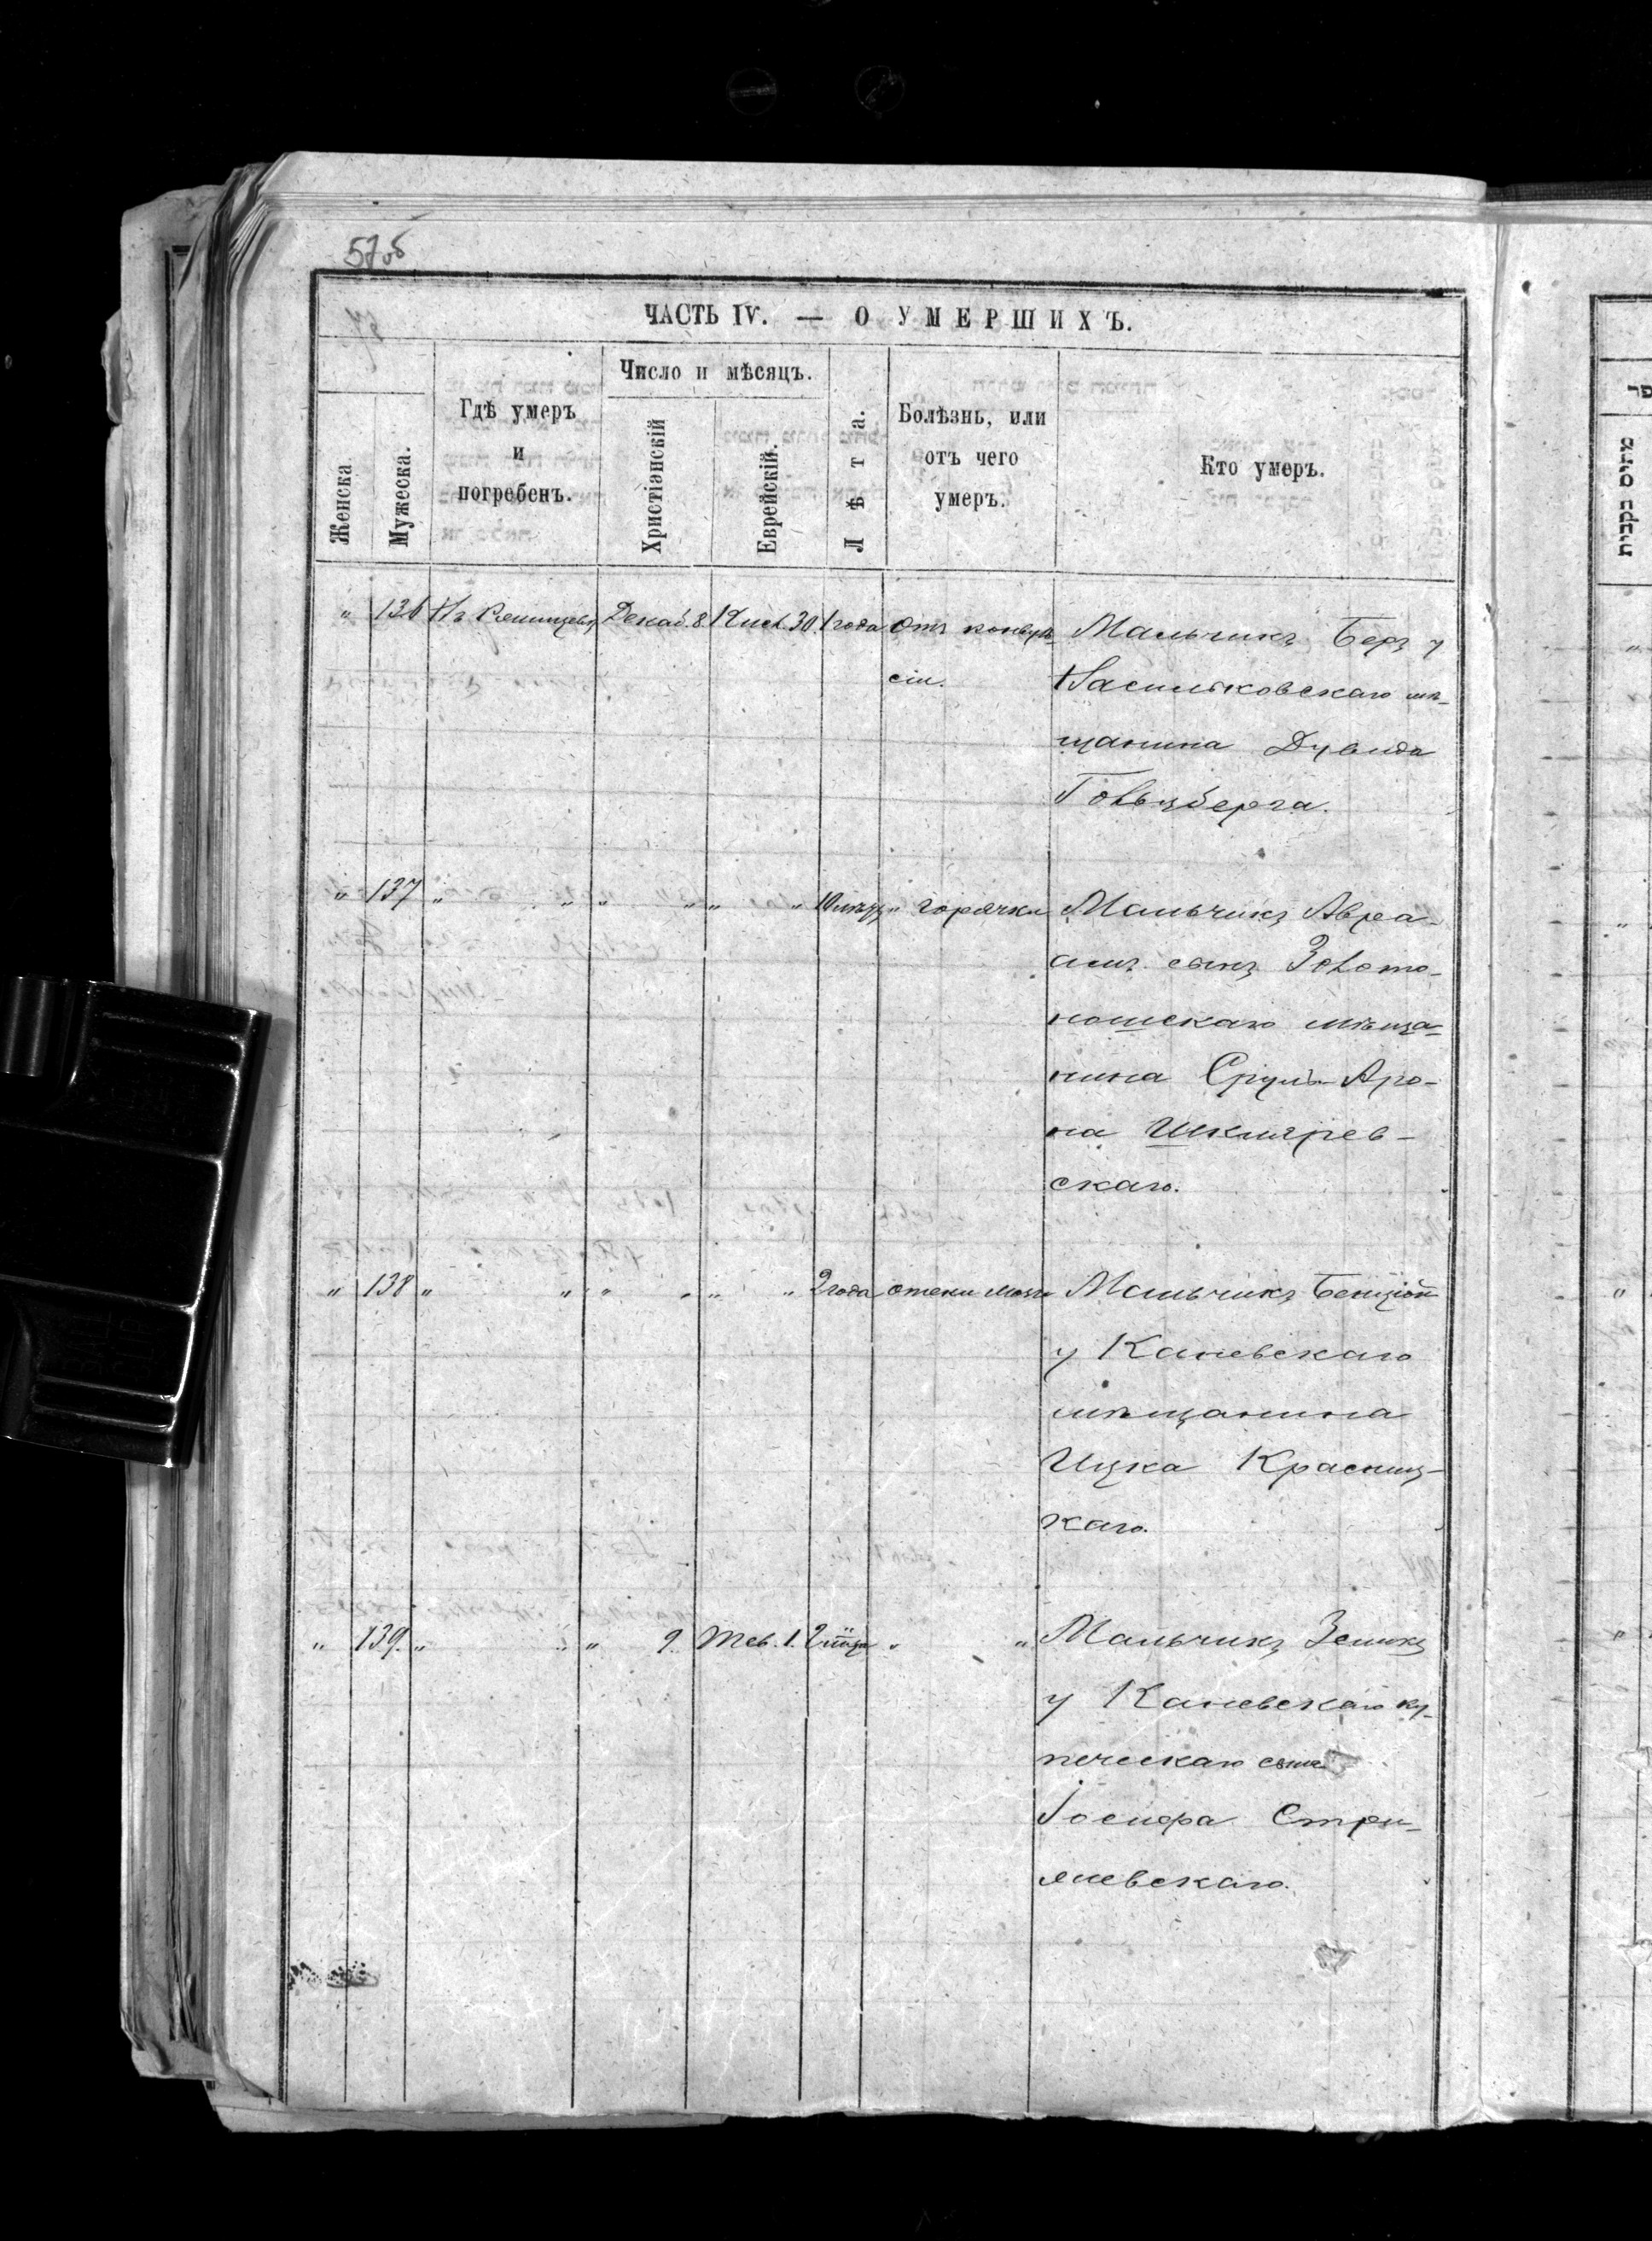 57об
ЧАСТЬ IV. — О УМЕРШИХЪ.
Женска
Мужеска.
Гдѣ умеръ
и
погребенъ.
Число и мѣсяцъ.
Христіанскій
Еврейскій.
Лѣта.
Болѣзнь, или
отъ чего
умеръ.
Кто умеръ.
" 136 Въ Декаб. 8 Кисл. 30 1 года Отъ конвуль- Мальчикъ Беръ у
сіи. Васильковскаго мѣ-
щанина Дувида
Гольцберга.
" 137 " " " " " " 10 мѣсц " горячки Мальчикъ Авра-
амъ сынъ Золото-
ношскаго мѣща-
нина Сруль-Аро-
на Шкляров-
скаго.
" 138 " " " " " " 2 года отеки мозга Мальчикъ Бенціонъ
у Каневскаго
мѣщанина
Ицка Красниц-
каго.
" 139. " " " 9. Тев. 1. 2 " " Мальчикъ Зеликъ
у Каневскаго ку-
печескаго сына
Іосифа Стри-
жевскаго.
מתים בקבית